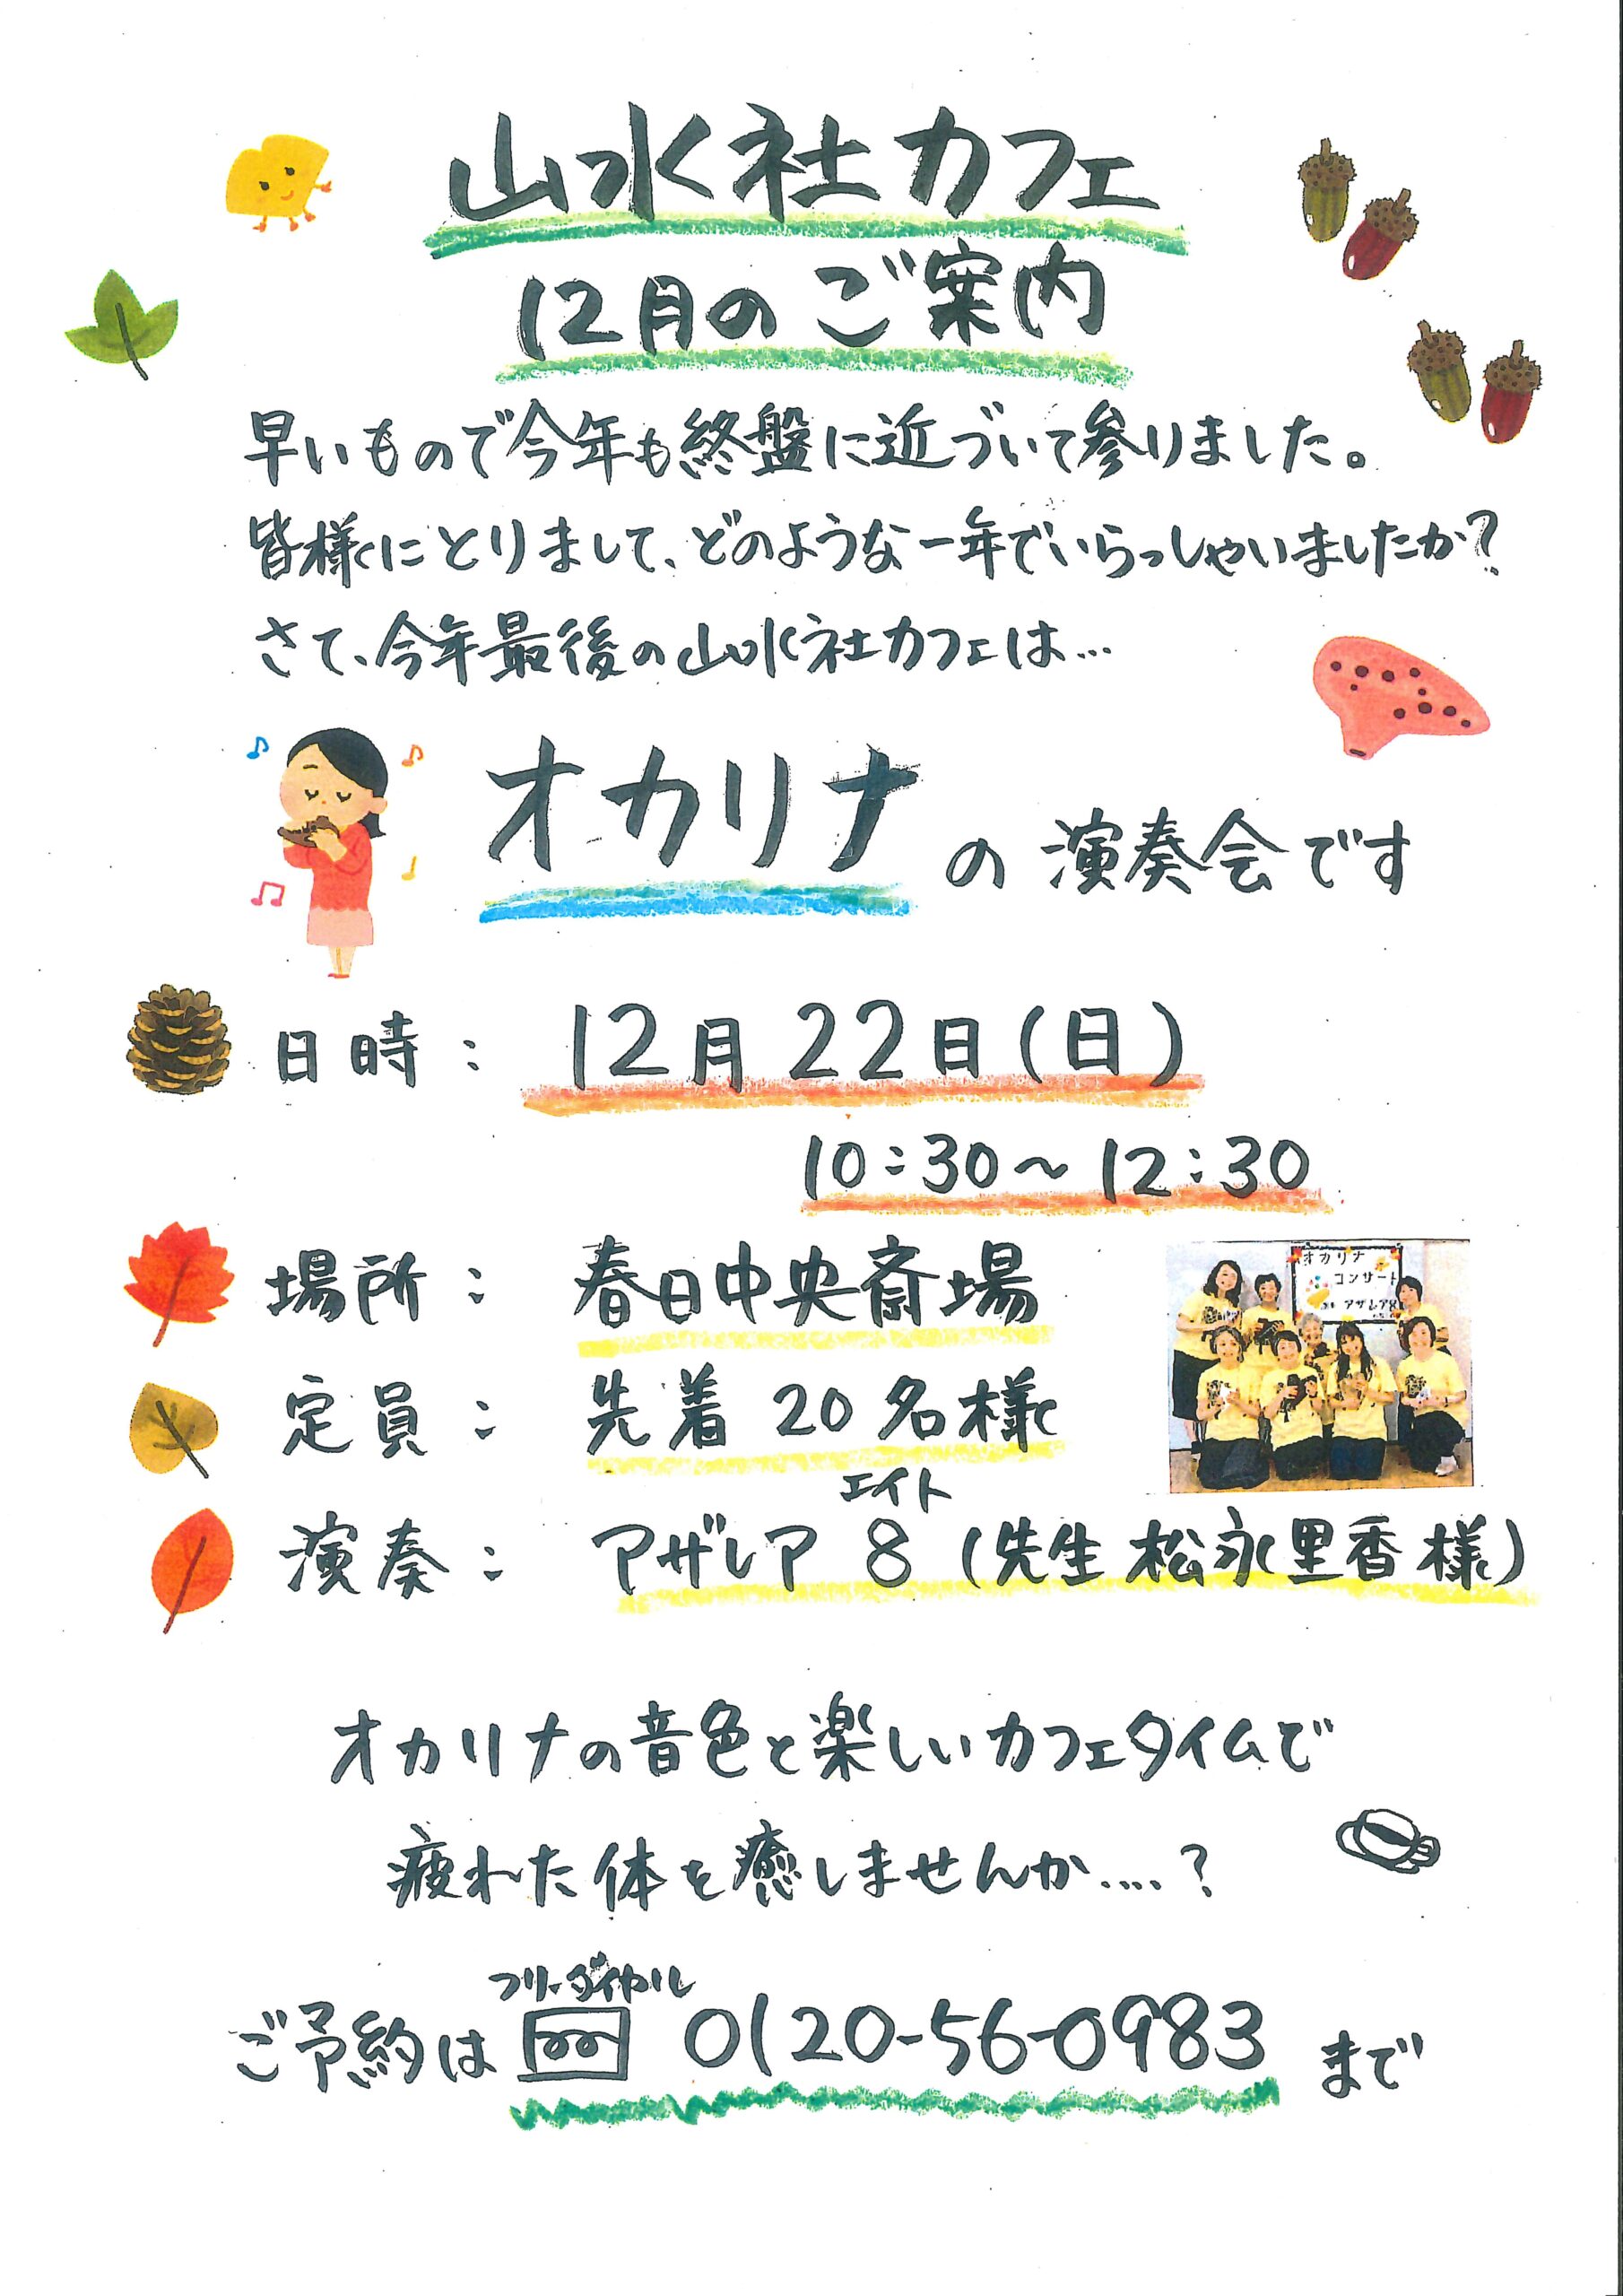 山水社カフェ
12月のご案内
早いもので今年も終盤に近づいて参りました。
皆様にとりまして、どのような一年でいらっしゃいましたか?
さて、今年最後の山水社カフェは…
オカリナの演奏会です
日時: 12月22日(日)
10:30~12:30
場所: 春日中央斎場
オカリナ
コンサート
アザレア8
定員: 先着20名様
エイト
演奏: アザレア8(先生 松永里香様)
オカリナの音色と楽しいカフェタイムで
疲れた体を癒しませんか....?
フリーダイヤル
ご予約は 0120-56-0983 まで